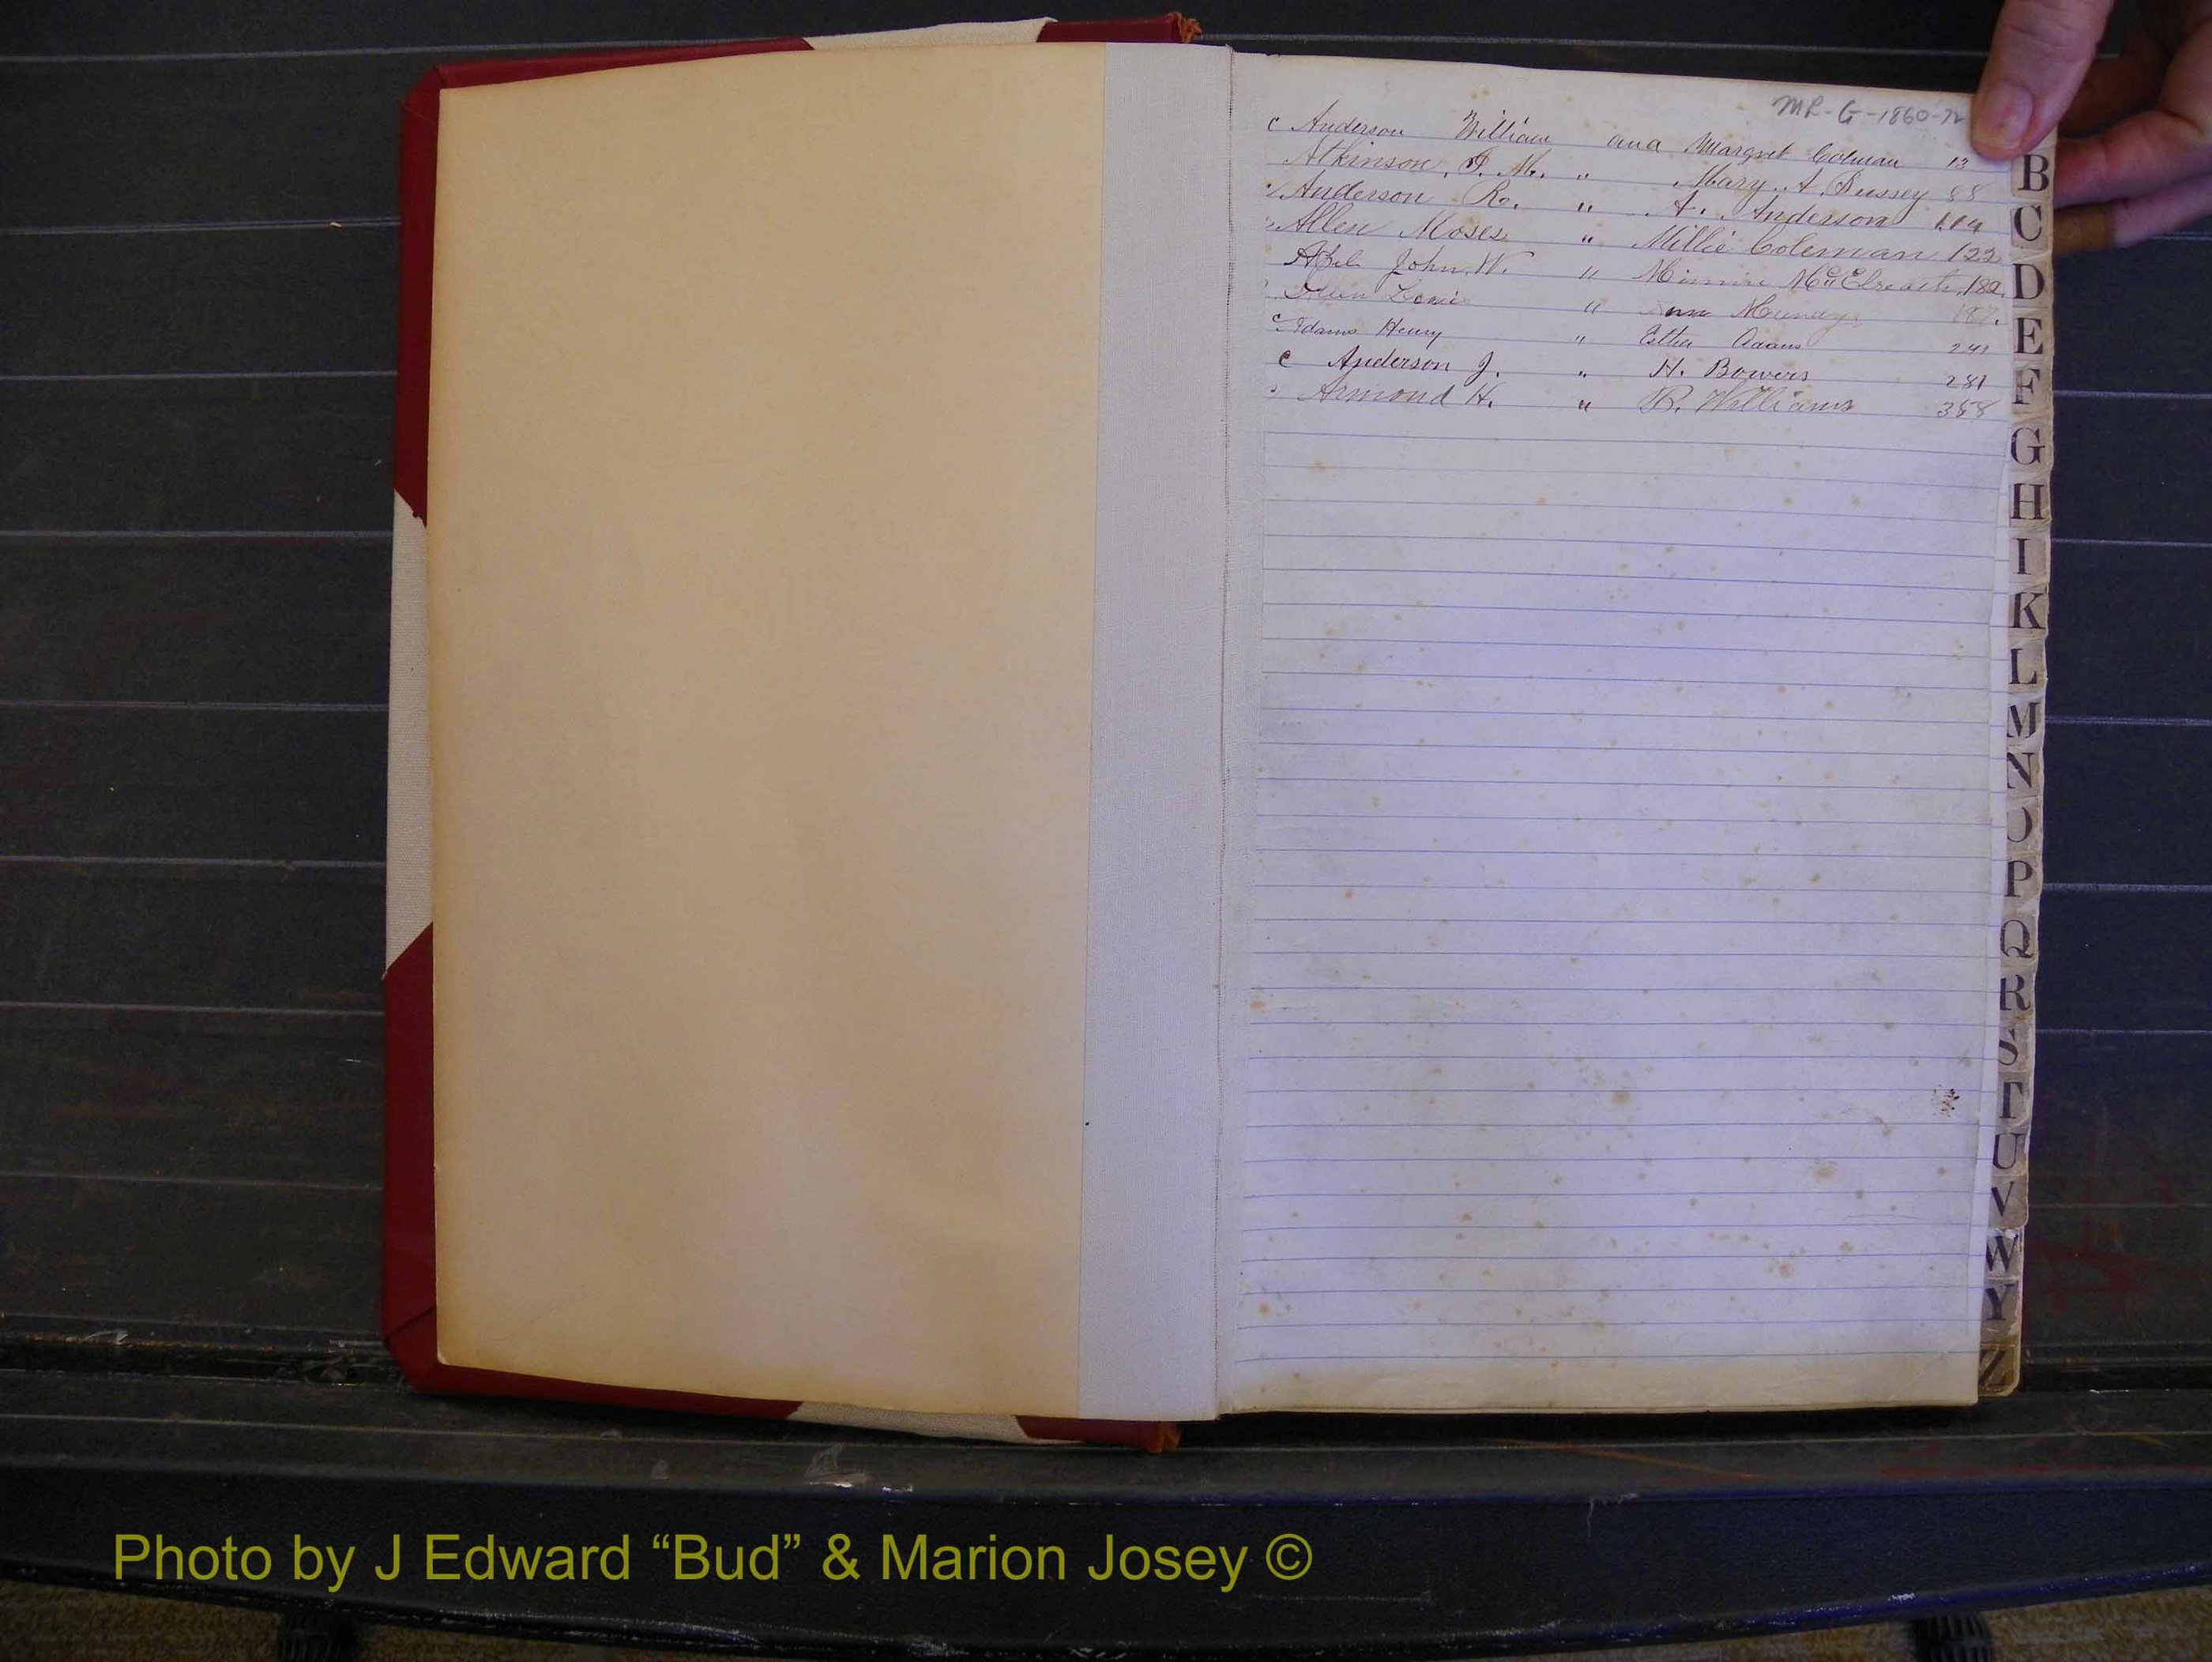 MR-G-1860-72
c Anderson William and Margret Colman 13
Atkinson, J. M. " Mary A Bussey 88
Anderson R. " A. Anderson 119
Allen Moses " Millie Coleman 122
Abel John W. " Minnie McElreath 180
Allen " Munday 187
c Adams Henry " Esther Adams 241
c Anderson J. " H. Bowers 281
Armond H. " R. Williams 358
B
C
D
E
F
G
H
I
K
L
M
N
O
P
Q
R
S
T
U
V
W
Y
Z
Photo by J Edward “Bud” & Marion Josey ©